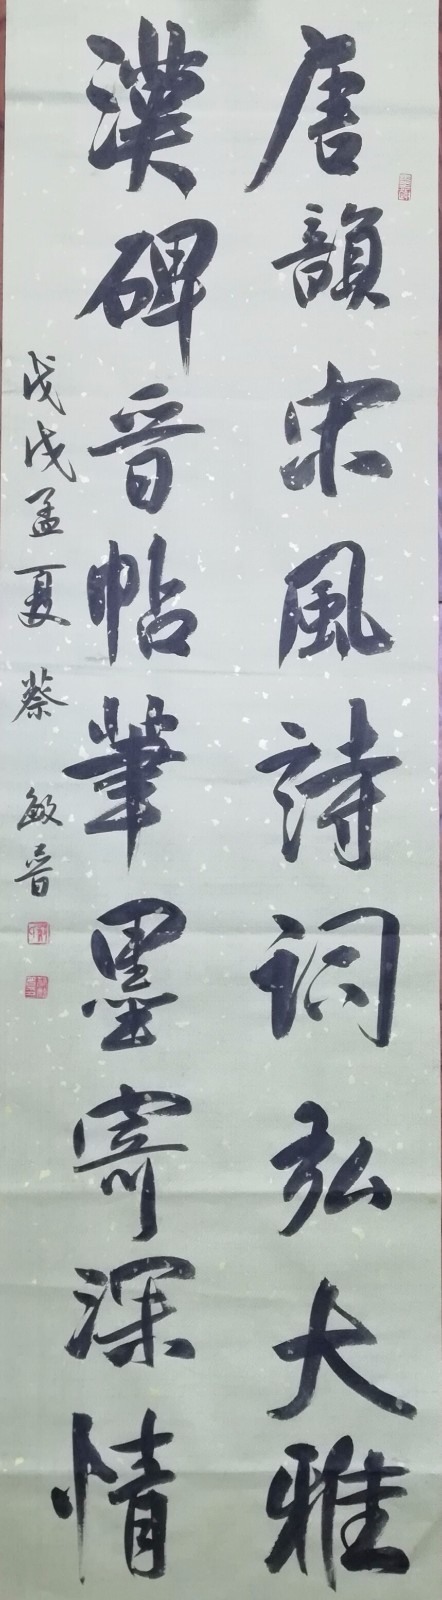 唐韻宋風詩詞弘大雅
漢碑晋帖筆墨寄深情
戊戌孟夏蔡敏晋